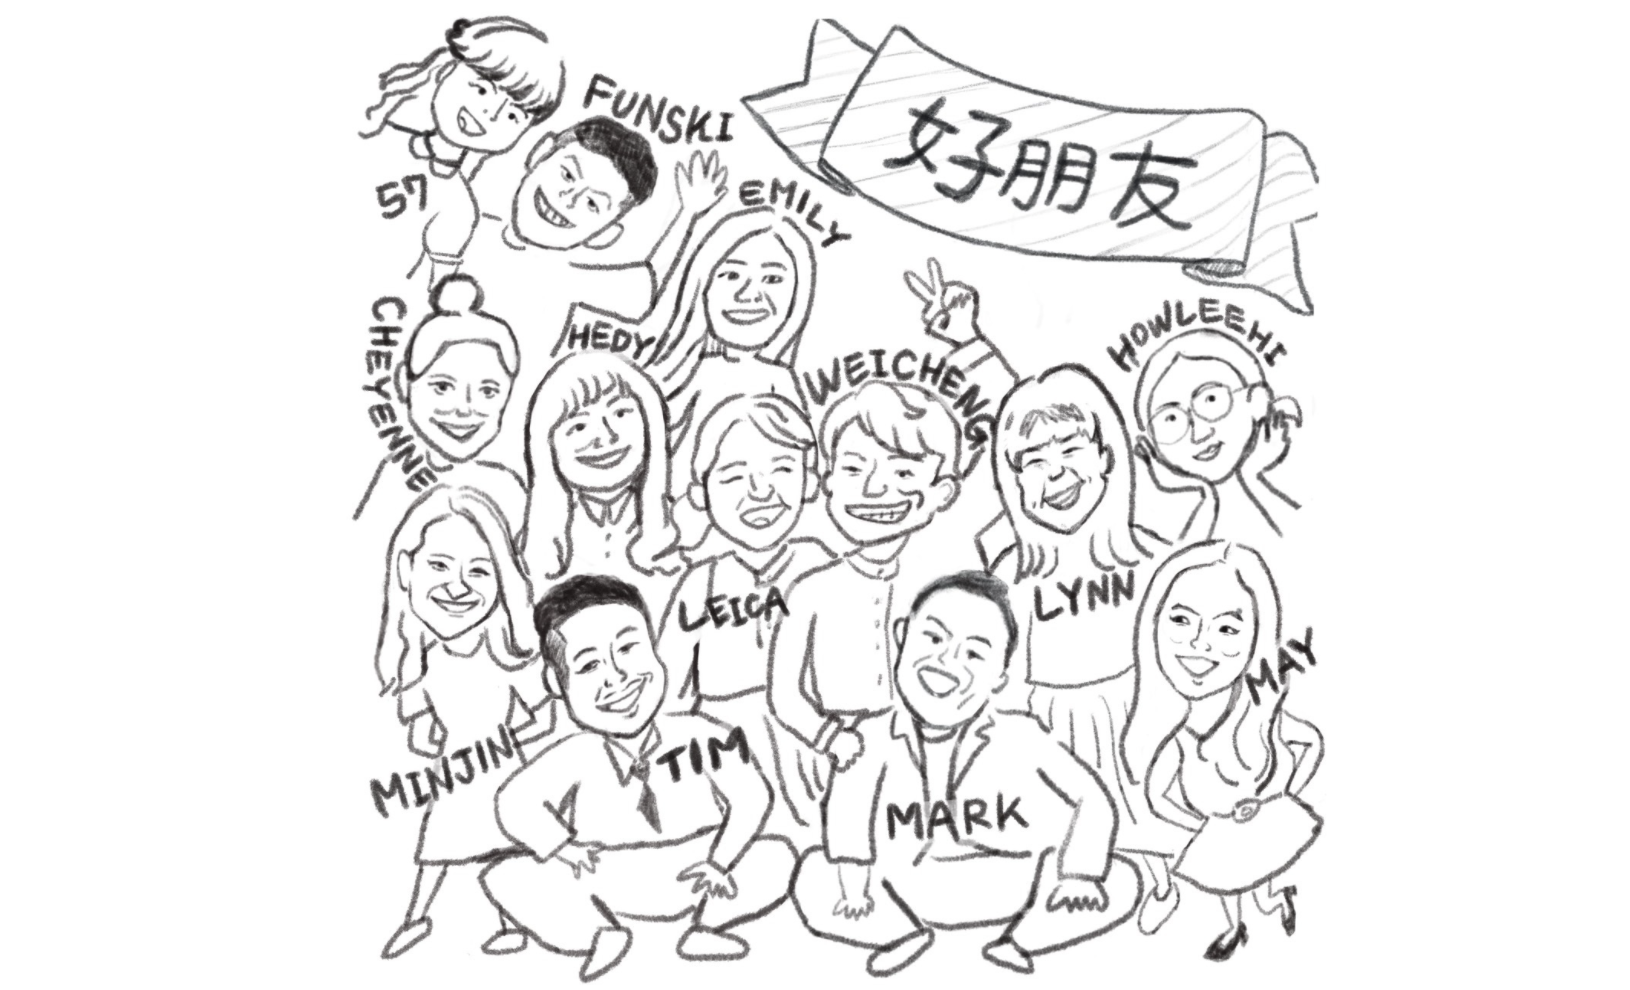 好朋友
FUNSKI
57
EMILY
CHEYENNE
HEDY
WEICHENG
HOWLEEHI
LEICA
LYNN
MAY
MINJIN
TIM
MARK